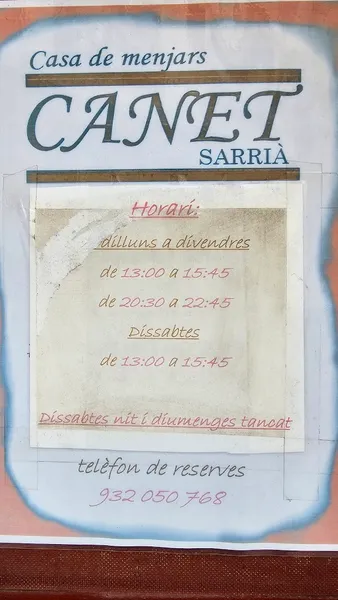 Casa de menjars
CANET
SARRIÀ
Horari:
dilluns a divendres
de 13:00 a 15:45
de 20:30 a 22:45
Dissabtes
de 13:00 a 15:45
Dissabtes nit i diumenges tancat
telèfon de reserves
932 050 768